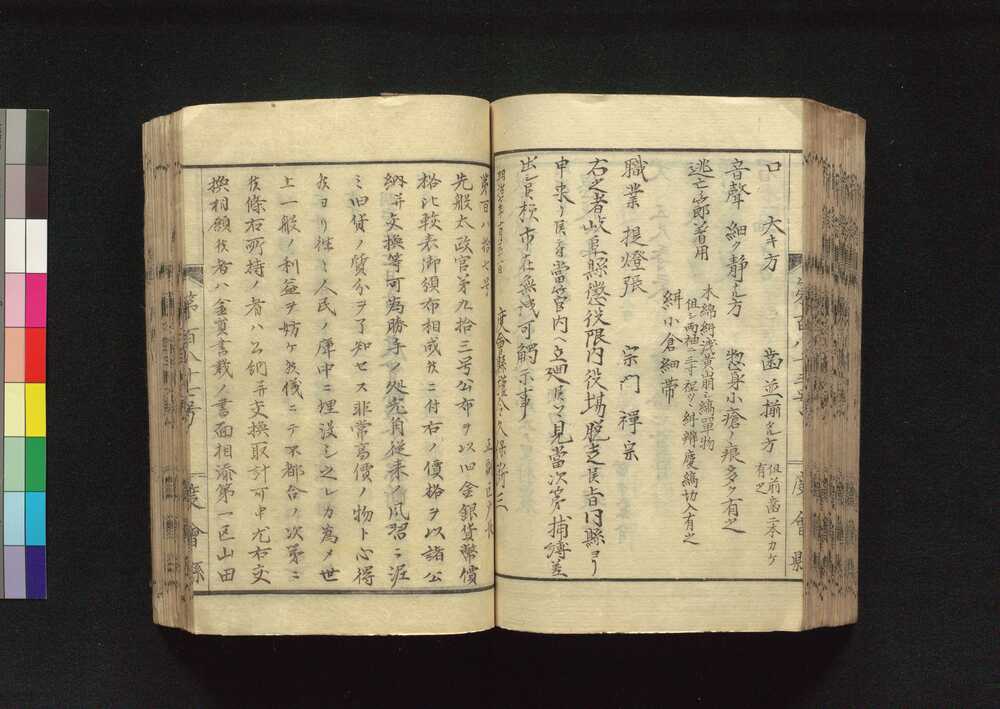 口 大キ方 歯並揃ヒ方 但前歯二本カケ有之
音聲 細ク静ナル方 惣身小瘡ノ痕多ク有之
逃亡ノ節着用
木綿絣浅黄崩シ縞單物
但シ両袖二寸架ツヽ絣辨慶縞切入有之
絣小倉細帯
職業 提燈張 宗門 禪宗
右之者岐阜縣懲役限内役場脱走候旨同縣ヨリ
申来リ候条當管内ヘ立廻候ハヽ見當次第捕縛差
出シ候様市在無洩可觸示事
度會縣
第百八拾七号
先般太政官第九拾三号公布ヲ以旧金銀貨幣價
格比較表御頒布相成候ニ付右ノ價格ヲ以諸公
納并交換等可為勝手ノ処兎角従来ノ風習ニ泥
ミ旧貨ノ質分ヲ了知セス非常高價ノ物ト心得
候ヨリ往々人民ノ庫中ニ埋没シ之レカ為メ世
上一般ノ利益ヲ妨ケ候儀ニテ不都合ノ次第ニ
候條右所持ノ者ハ公納并交換取計可申尤右交
換相願候者ハ金員書載ノ書面相添第一区山田
第百八十七号
度會縣